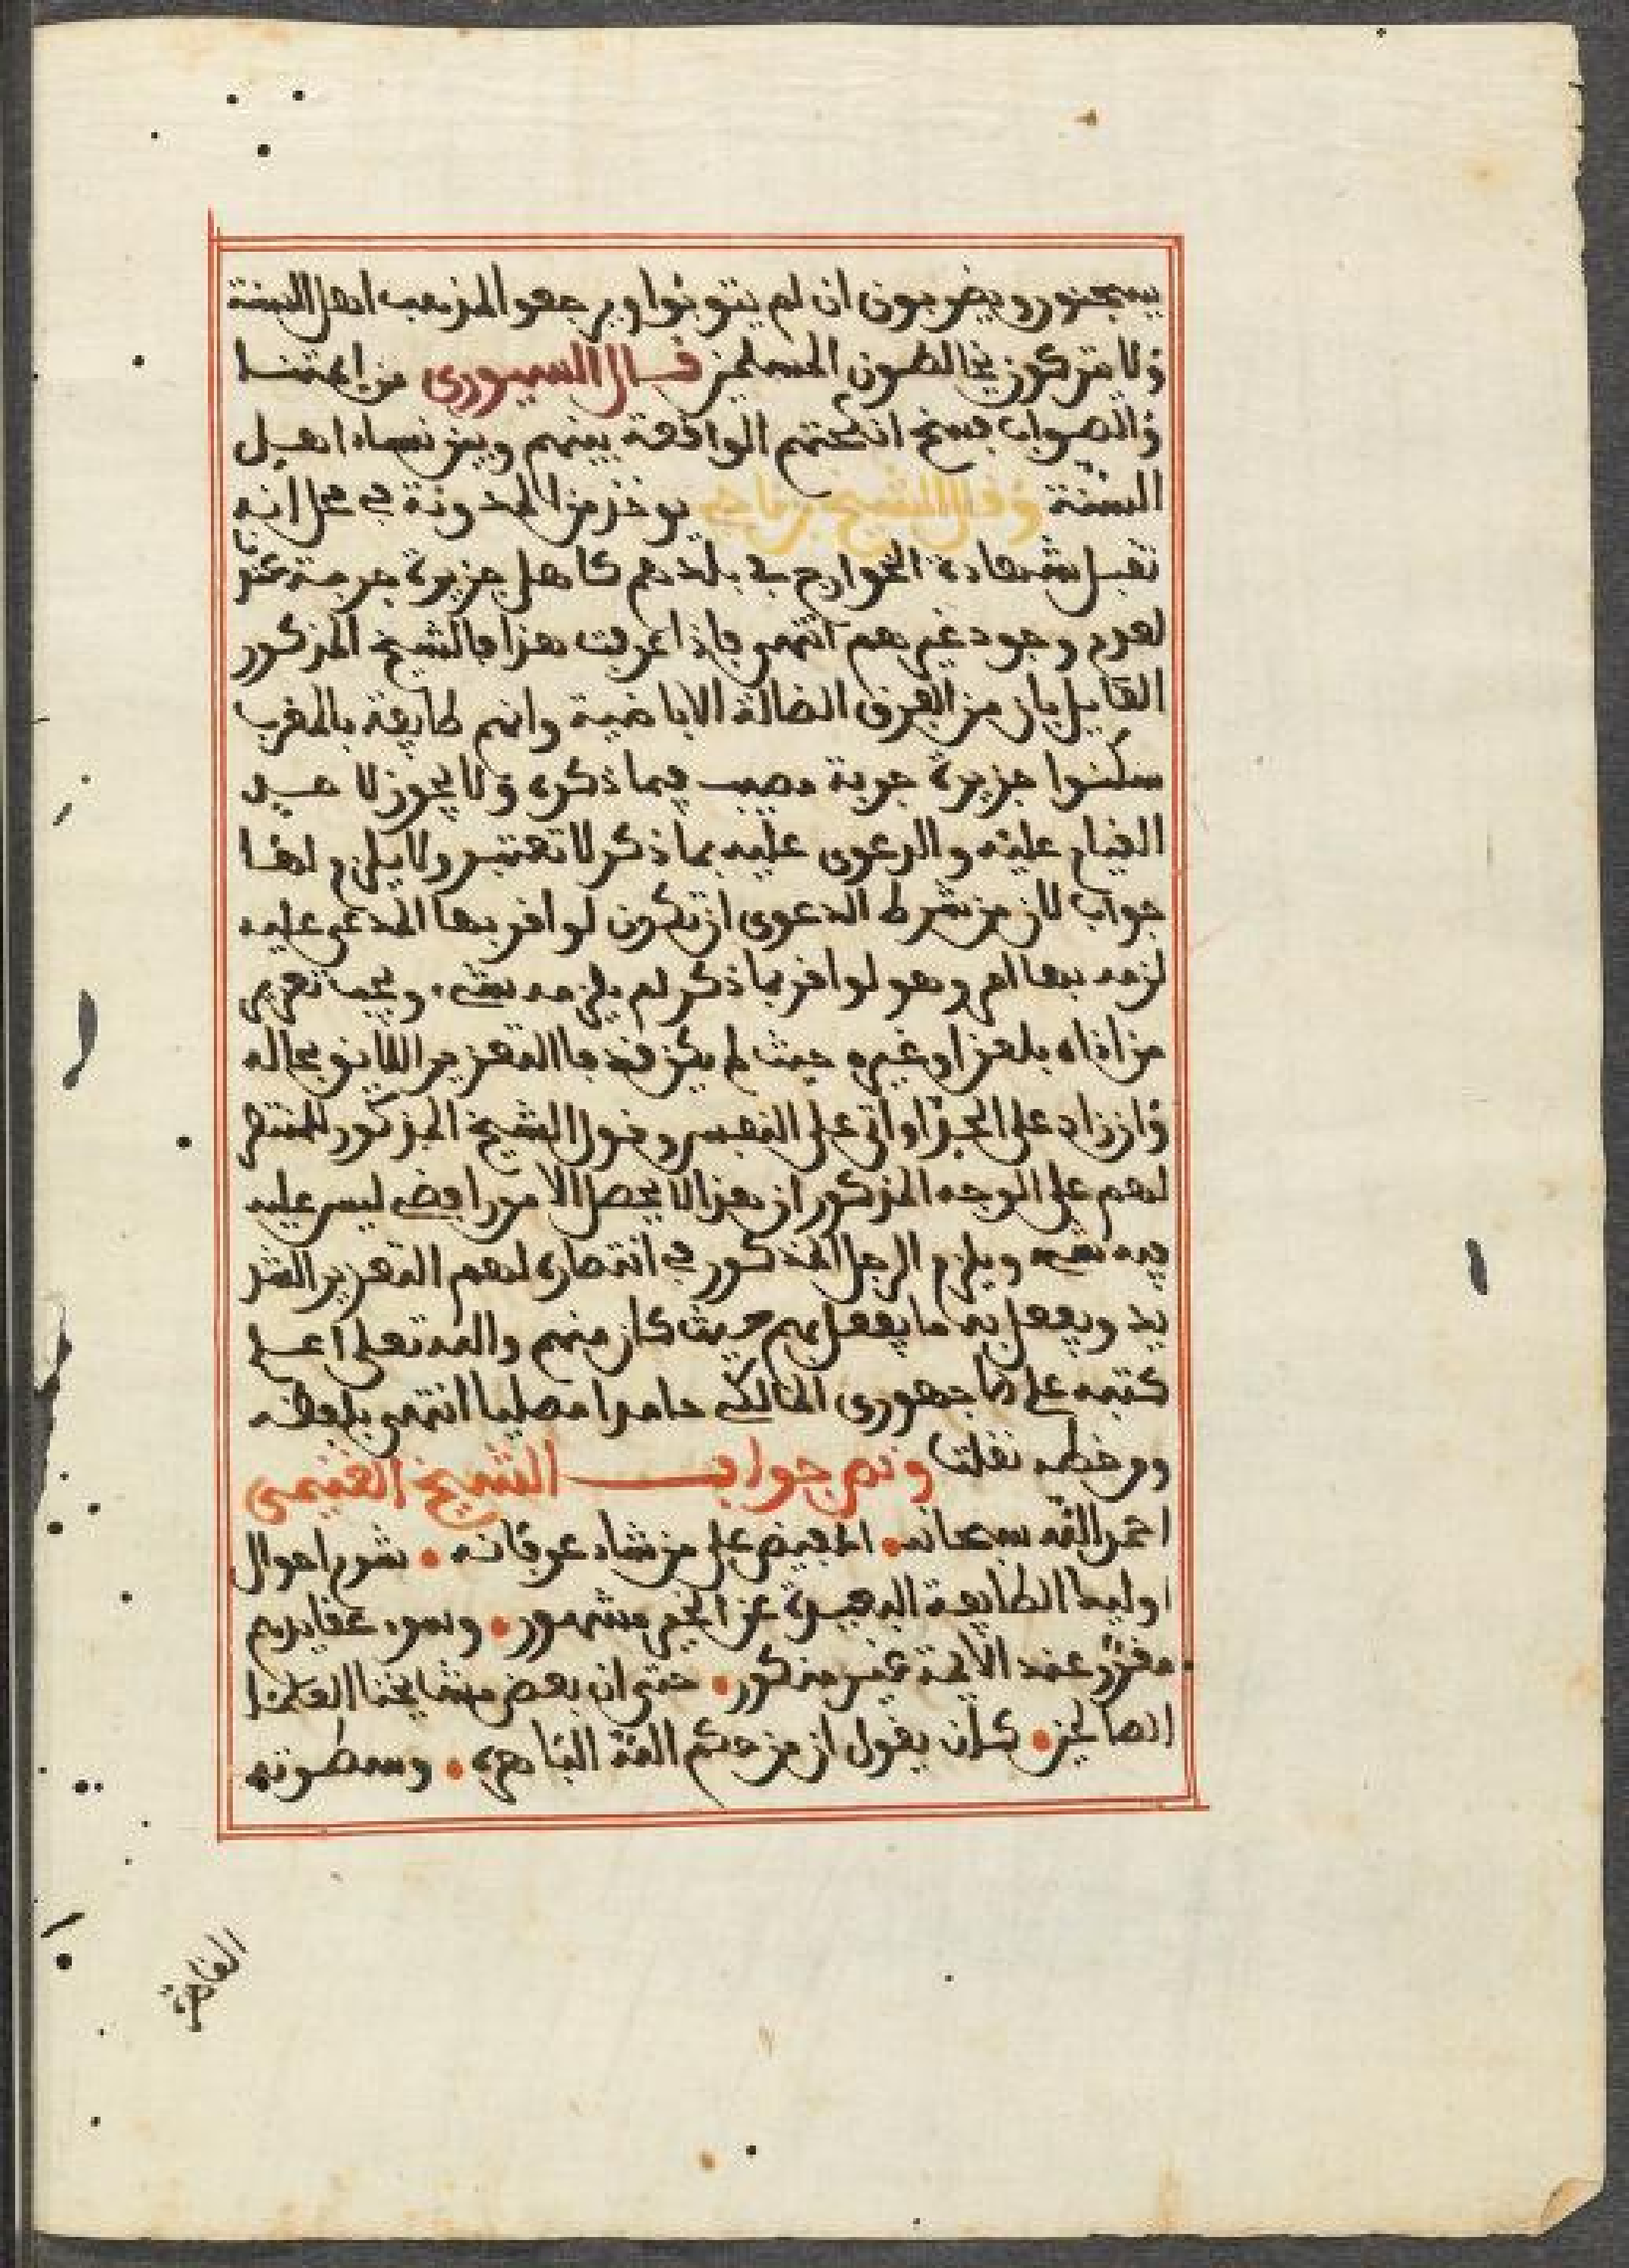 يسجنون ويضربون ان لم يتوبوا ويرجعو المذهب اهل السنة
ولا يتركون يخالطون المسلمين قال السيورى من ايمتنا
والصواب فسخ انكحتهم الواقعة بينهم وبين نساء اهل
السنة وقال الشيخ بن ناجي يوخذ من المدونة في محل انه
تقبل شهادة الخوارج في بلدهم كاهل جزيرة جربة عند
لعدم وجود غيرهم انتهى فاذا عرفت هذا فالشيخ المذكور
القايل بان من الفرق الضالة الاباضية وانهم طايفة بالمغرب
سكنوا جزيرة جربة مصيب فيما ذكره ولا يجوز لاحد
القيام عليه والدعوى عليه بما ذكر لا تعتبر ولا يلزم لها
جواب لان من شرط الدعوى ان تكون لو اقر بها المدعى عليه
لزمه بها امر وهو لو اقر بما ذكر لم يلزمه شيء ويجب تعزير
من اذاه بلعن او غيره حيث لم يكن قذفا التعزير اللايق بحاله
وان زاد على الحد او اتى على النفس وقول الشيخ المذكور للمنتصر
لهم على الوجه المذكور ان هذا لا يحصل الا من رافضي ليس عليه
فيه شيء ويلزم الرجل المذكور في انتصاره لهم التعزير الشد
يد ويفعل به ما يفعل بهم حيث كان منهم والله تعلى اعلم
كتبه على الاجهورى المالكي حامدا مصليا انتهى بلفظه
ومن خطه نقلت ونص جواب الشيخ الغنيمى
احمد الله سبحانه المفيض على من شاء عرفانه شوم احوال
اوليك الطايفة البعيدة عن الخير مشهور وسوء عقايدهم
مقرر عند الايمة غير مذكور حتى ان بعض مشايخنا العلما
الصالحين كان يقول ان من حكم الله الباهرة وسطوته
القاهرة